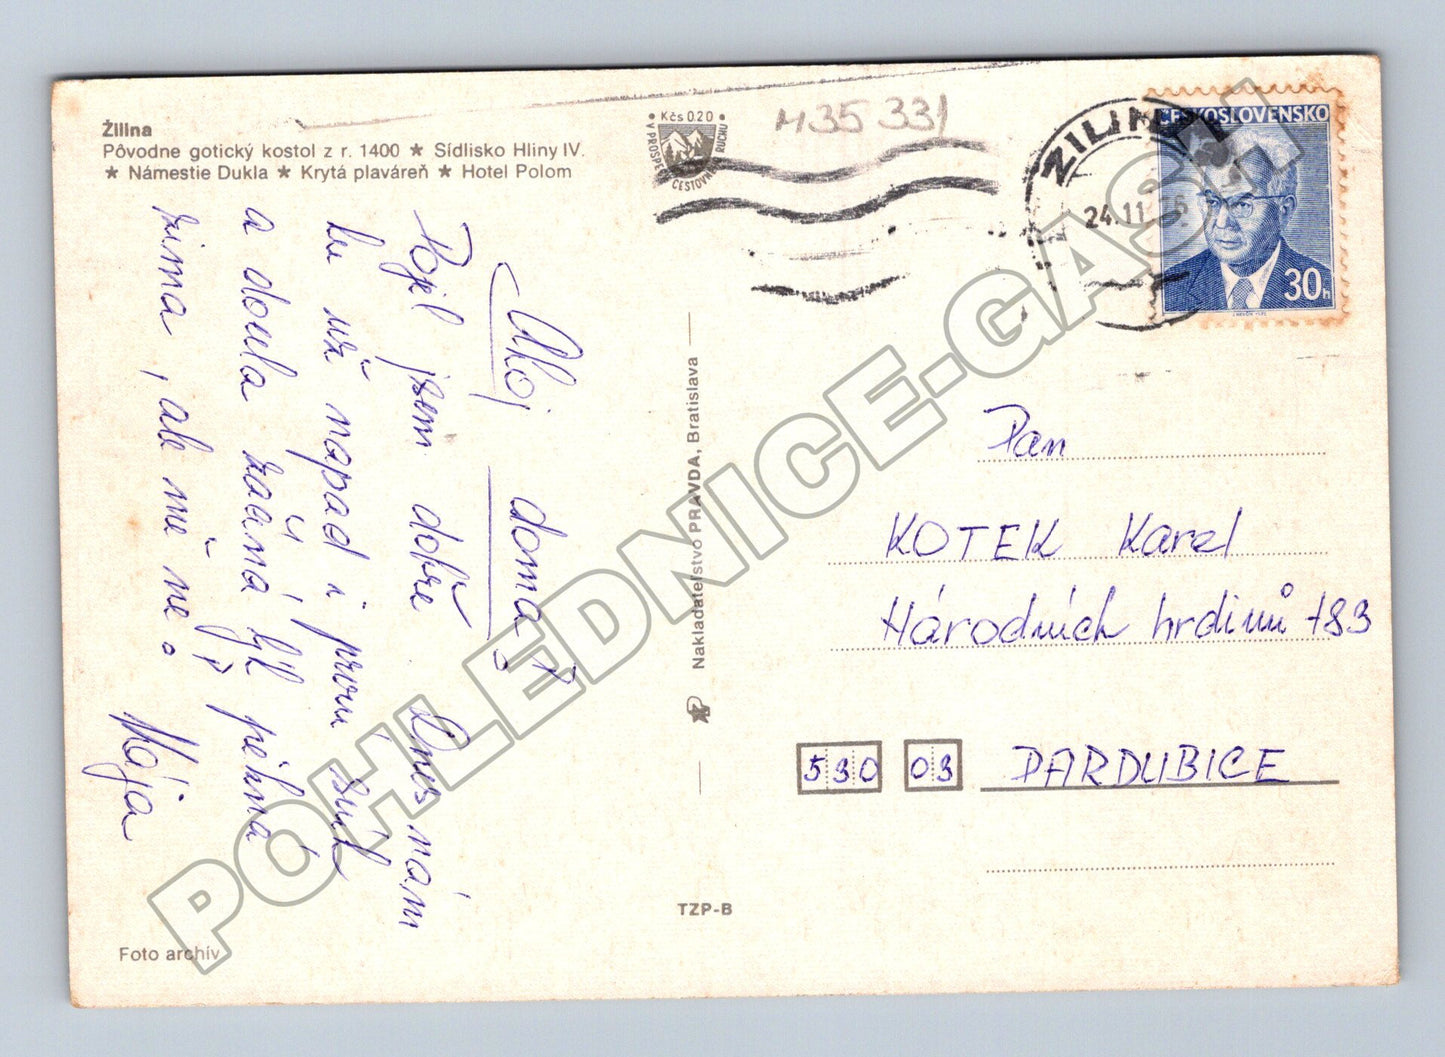 Žilina
Pôvodne gotický kostol z r. 1400 ★ Sídlisko Hliny IV.
★ Námestie Dukla ★ Krytá plaváreň ★ Hotel Polom
Kčs 0.20
V PROSPECH CESTOVNÉHO RUCHU
M35 331
ŽILINA
24.11.76
ČESKOSLOVENSKO
30h
Ahoj doma!
Dojel jsem dobře. Dnes nám
tu už napadl i první sníh
a docela začíná být pěkná
zima, ale mě ne.
Mája
Nakladateľstvo PRAVDA, Bratislava
Pan
KOTEK Karel
Národních hrdinů 183
530 03 PARDUBICE
TZP-B
Foto archív
POHLEDNICE-GASH